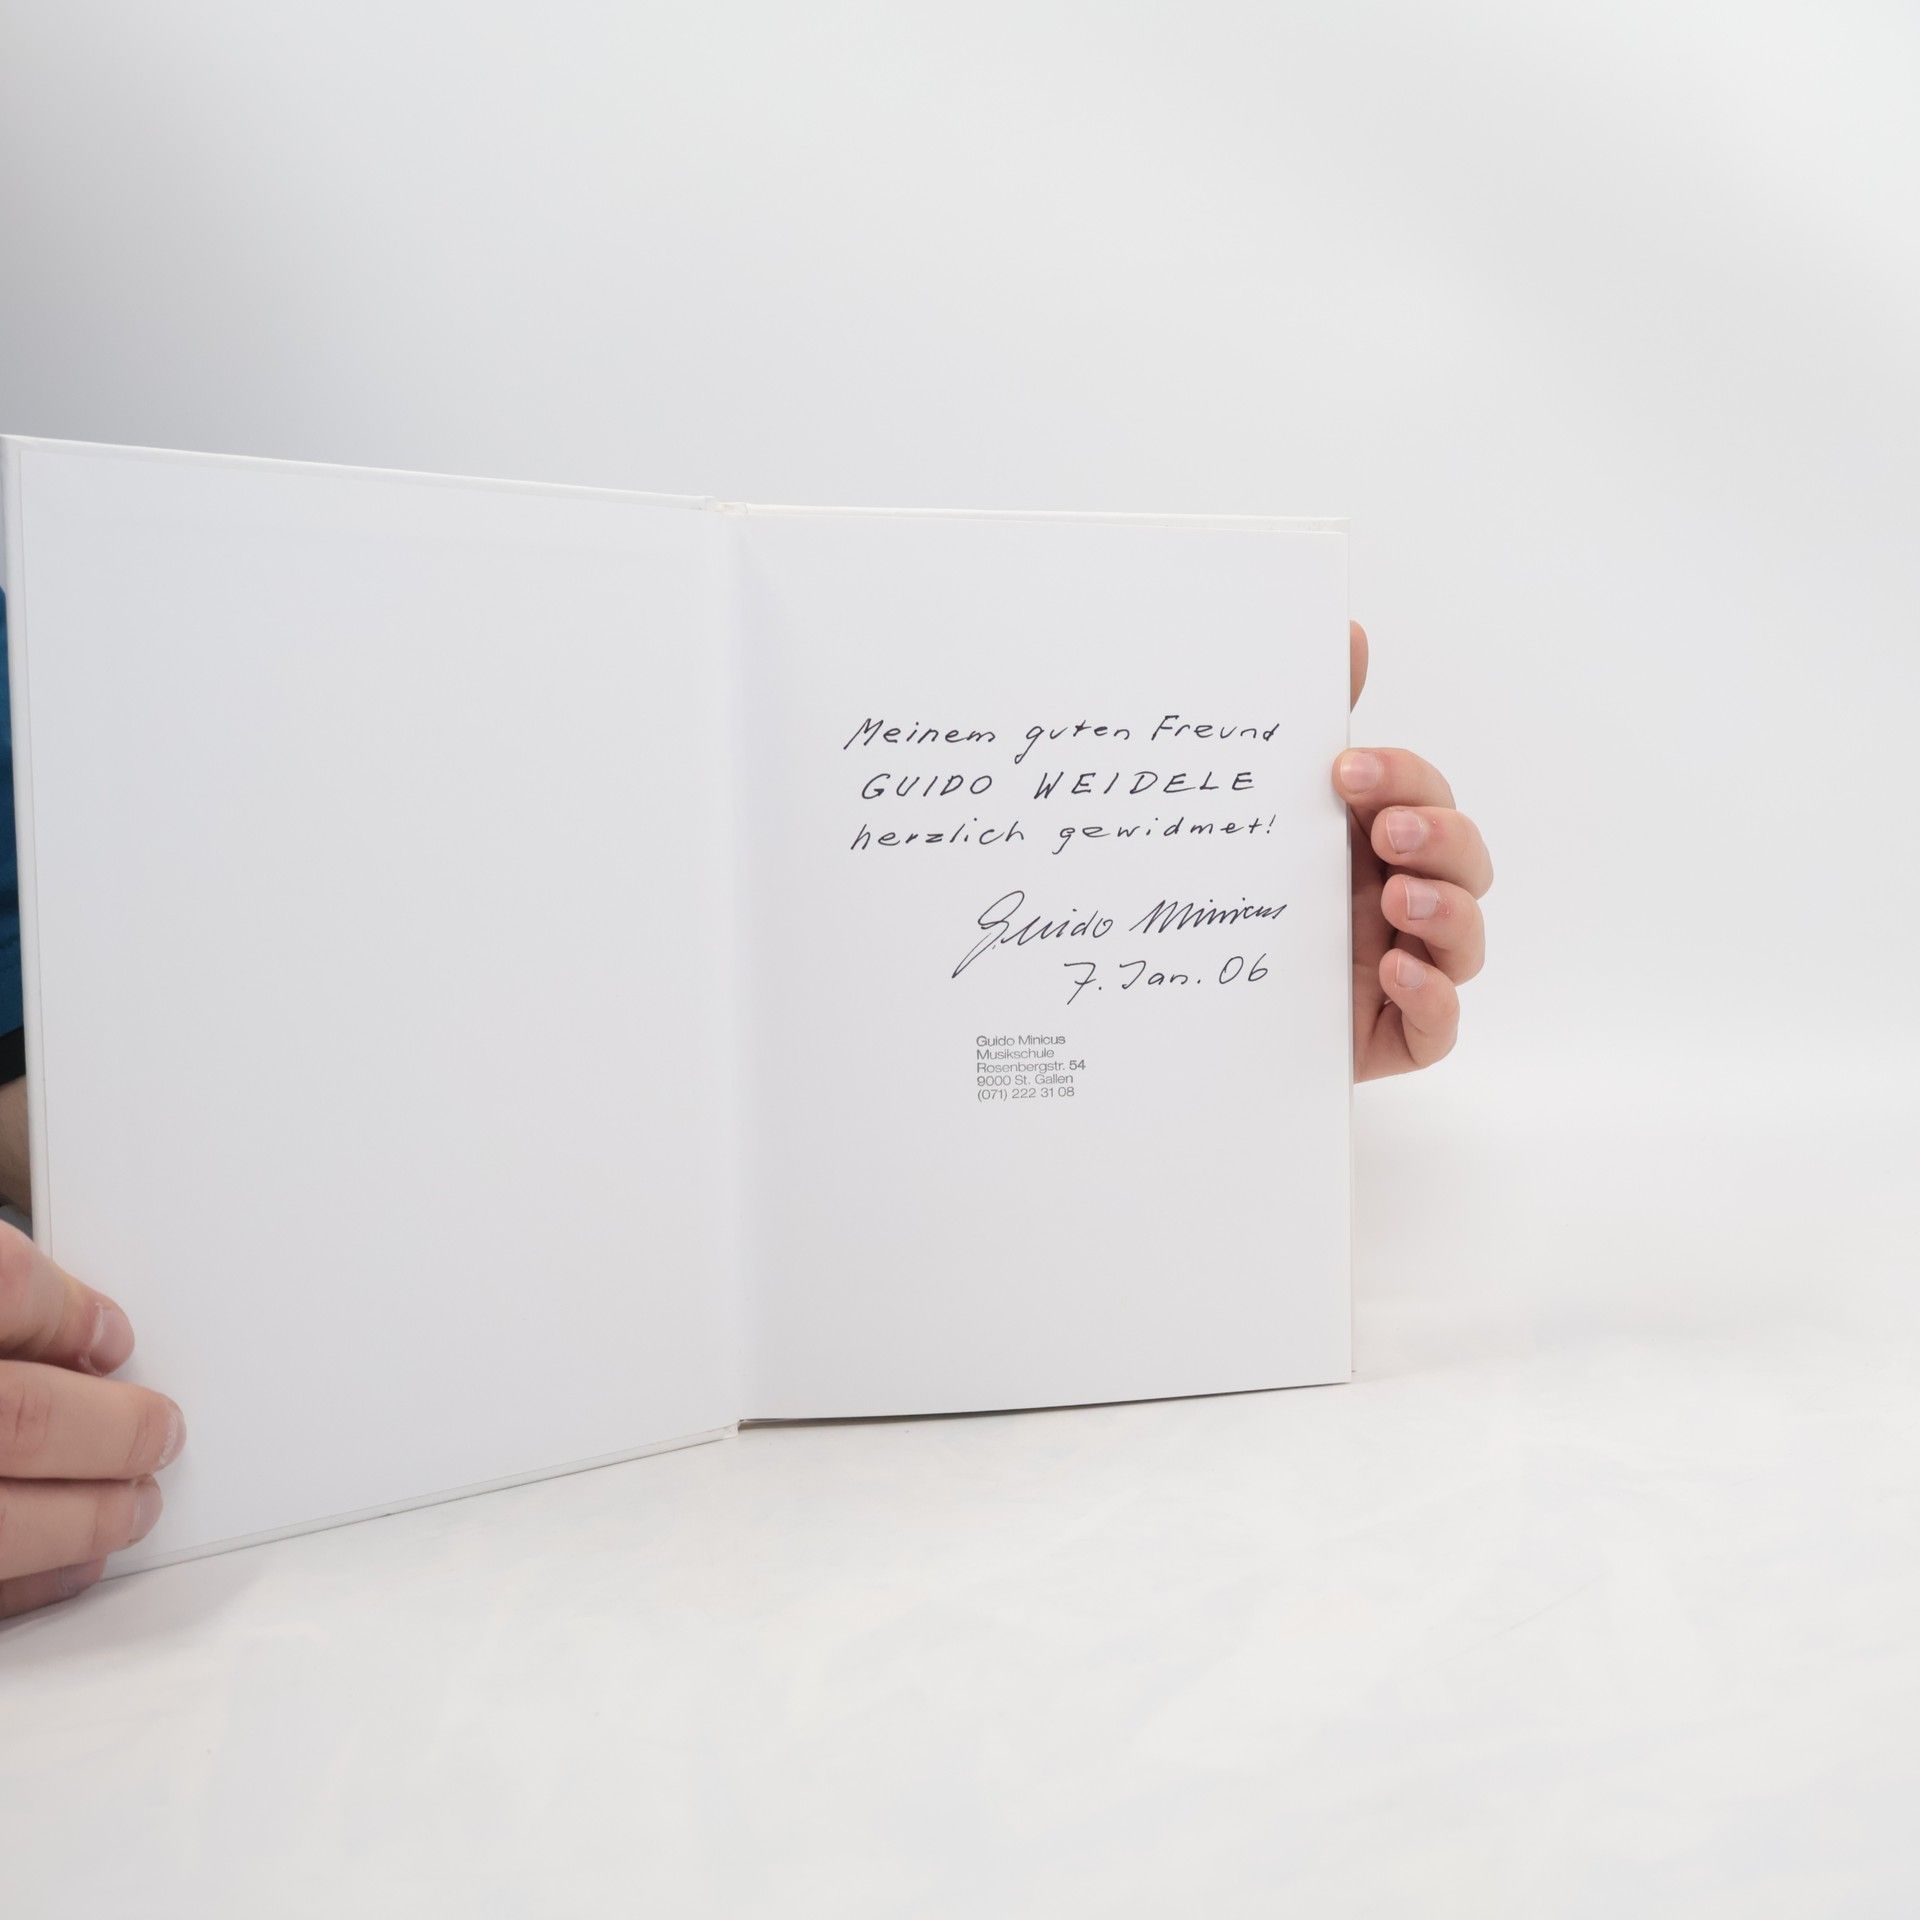 Meinem guten Freund
GUIDO WEIDELE
herzlich gewidmet!
Guido Minicus
7. Jan. 06
Guido Minicus
Musikschule
Rosenbergstr. 54
9000 St. Gallen
(071) 222 31 08